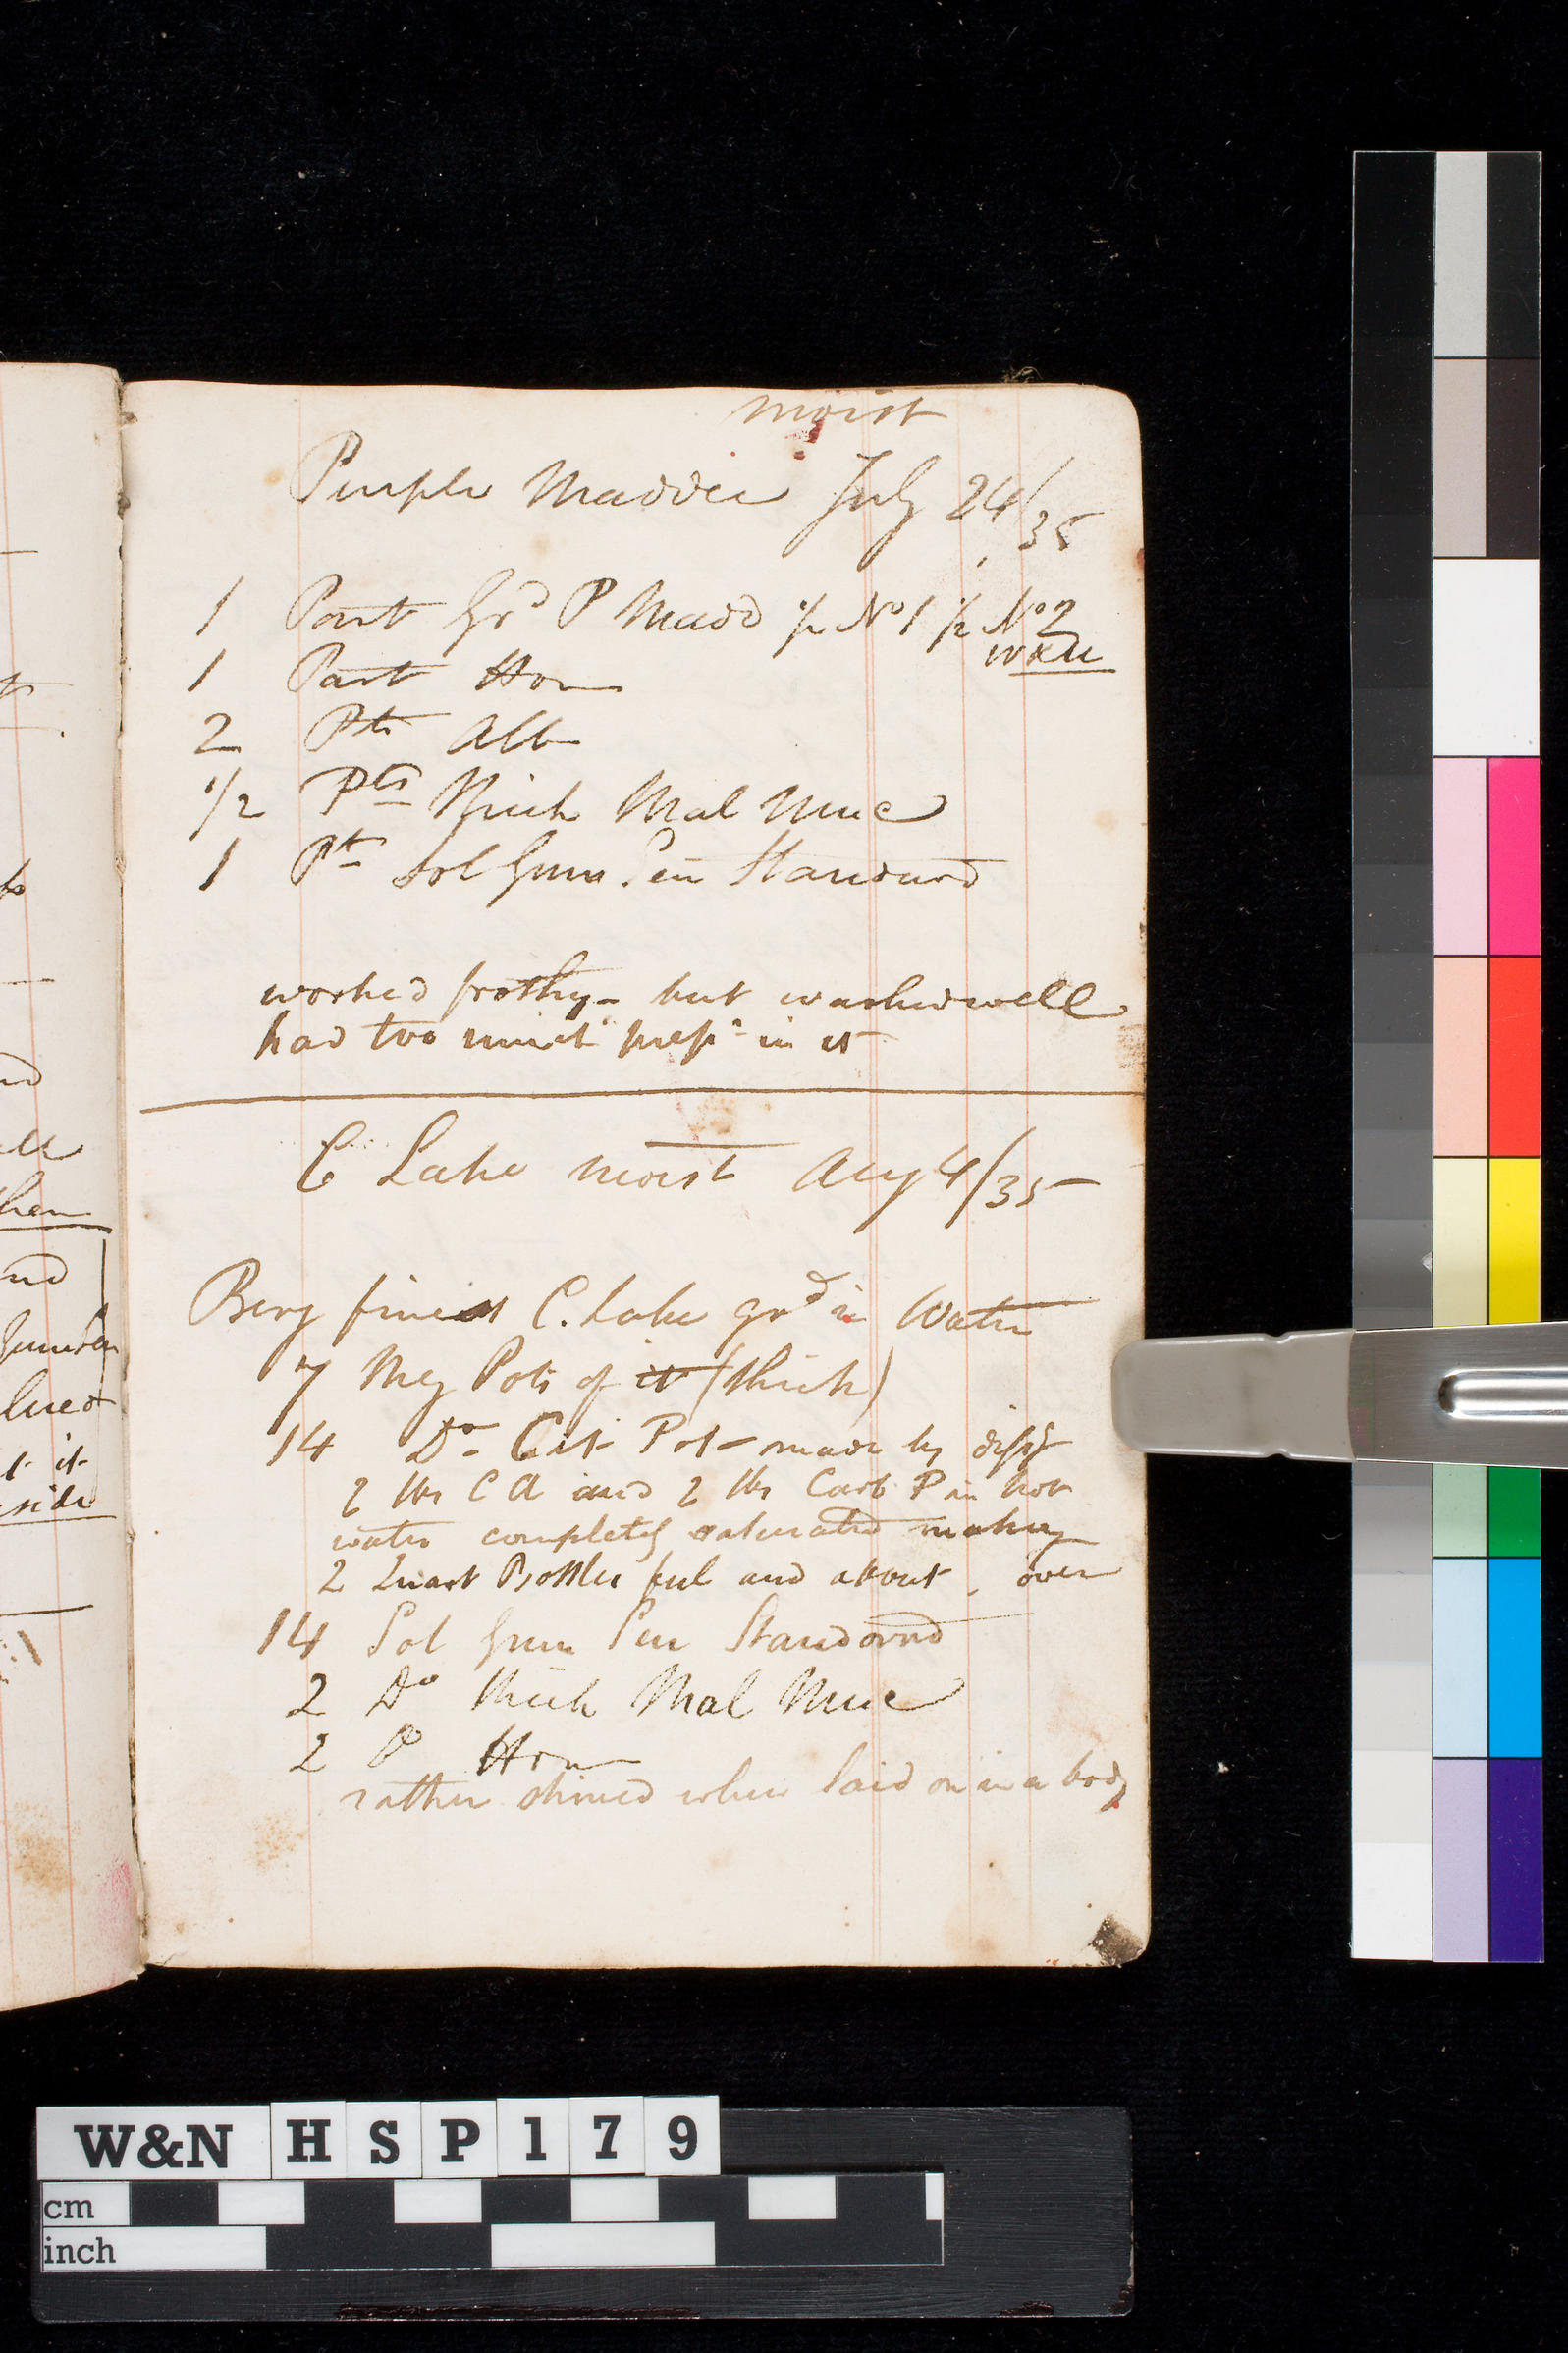 moist
Purple Madder July 24/35
1 Part Grd P Madd 1/2 No 1 1/2 No 2
1 Part Hon
2 Pts Alb
1/2 Pts Thick Mal Muc
1 Pt Sol Gum Sen Standard
worked frothy - but washed well
had too much prepn in it
C Lake moist Aug 4/35
Berg finest C. Lake grd in Water
7 Meg Pots of it (thick)
14 Do - Cit Pot - made by dissg
2 lbs C A and 2 lbs Carb P in hot
water completely saturated making
2 Quart Bottles full and about over
14 Sol Gum Sen Standard
2 Do thick Mal Muc
2 P Hon
rather shined when laid on in a body
nd
then
nd
t it
side
W&N HSP179
cm
inch